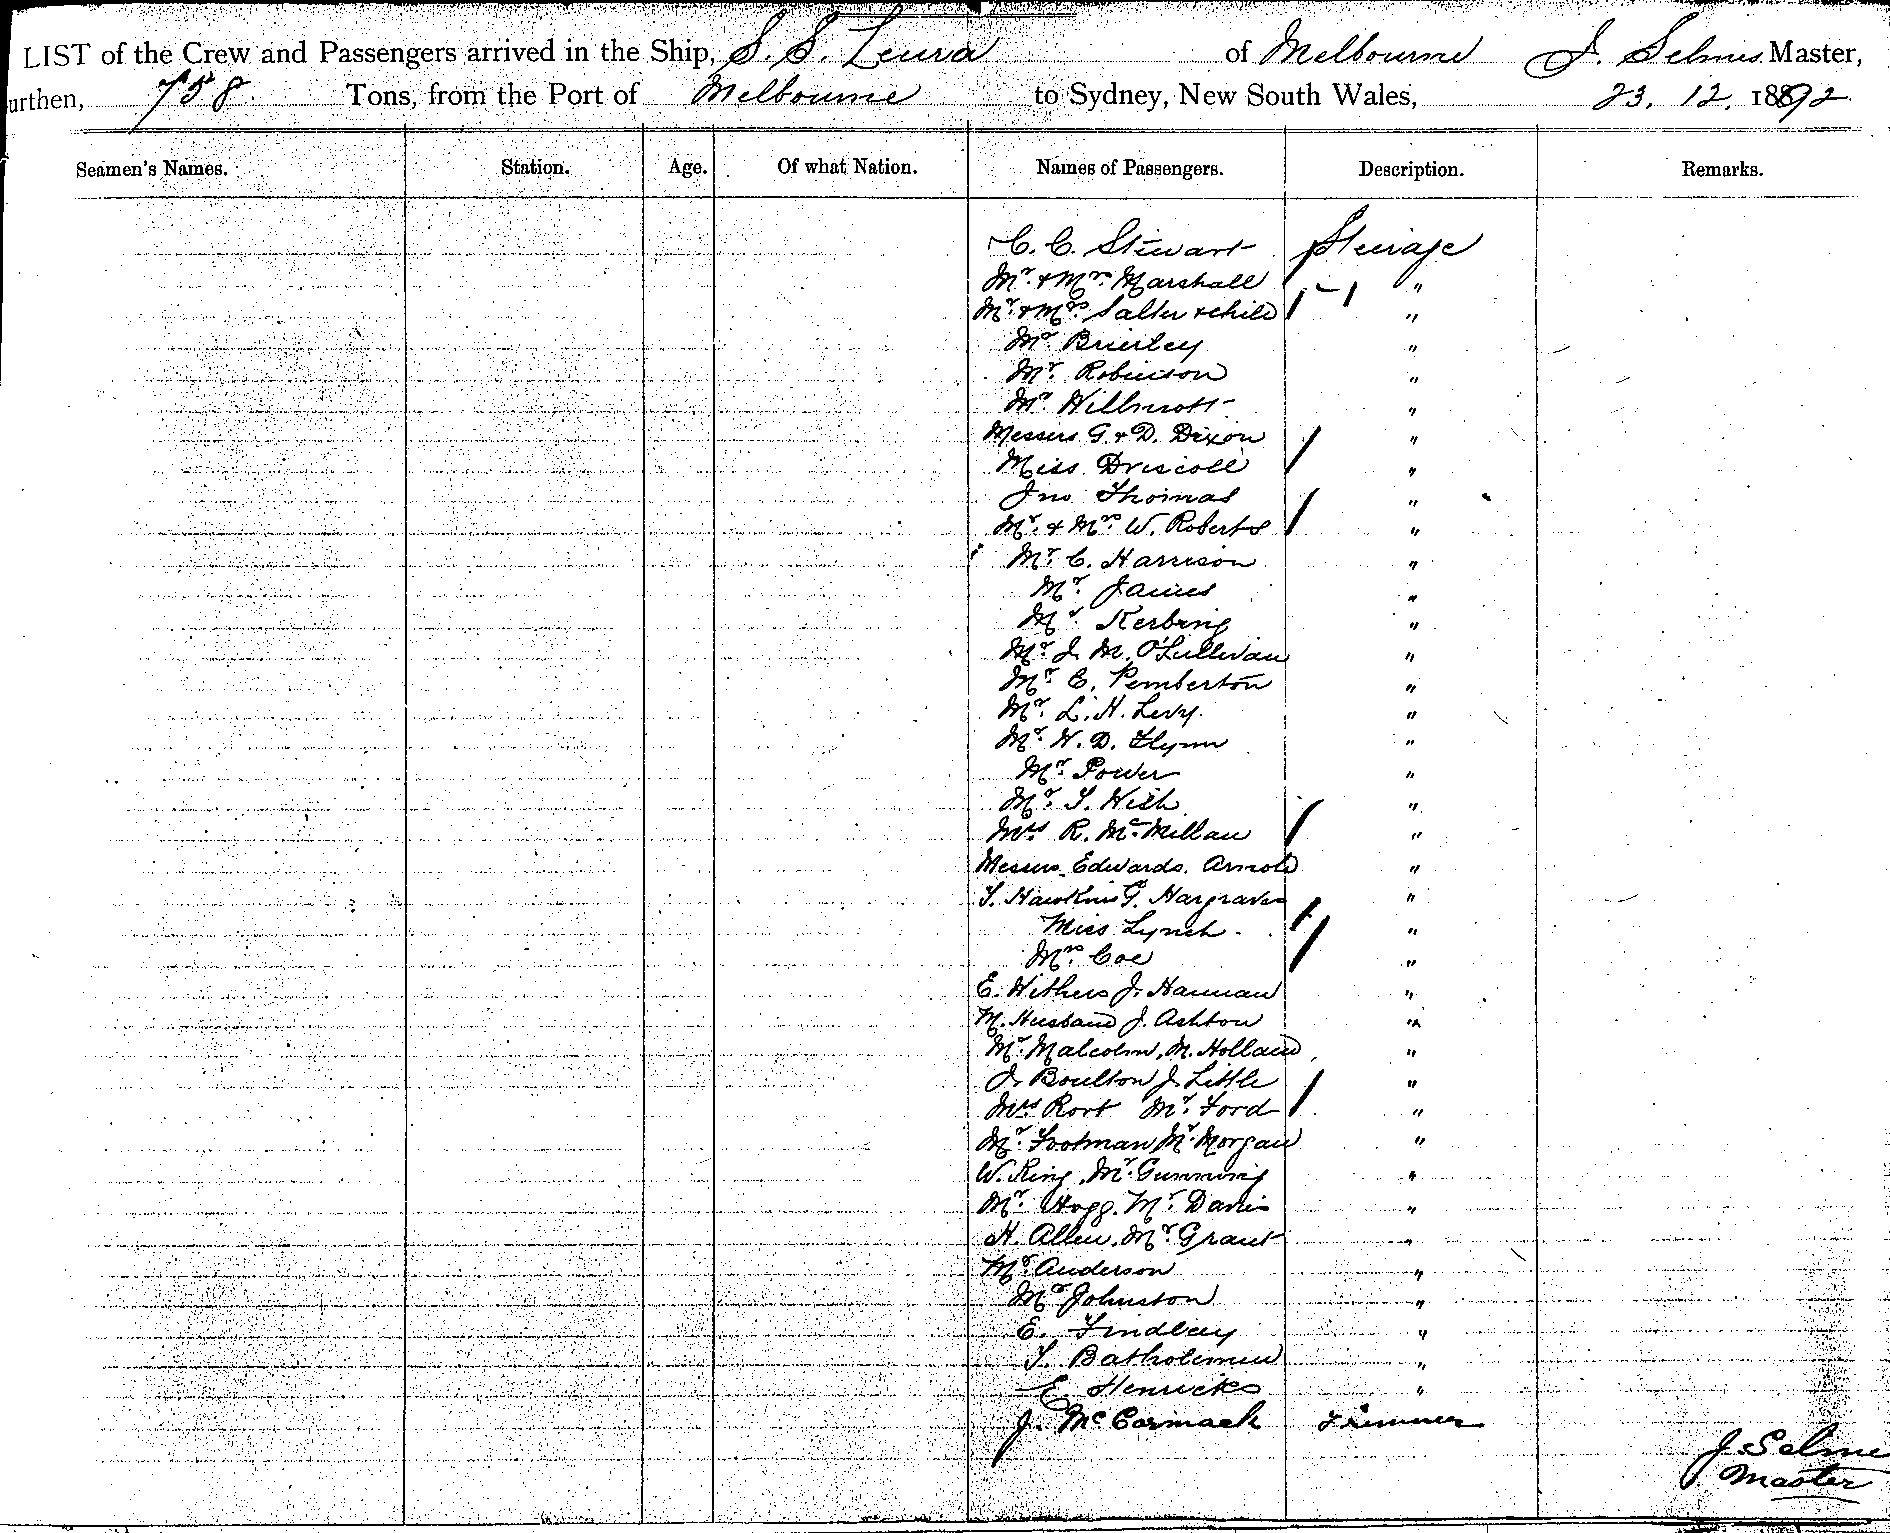 LIST of the Crew and Passengers arrived in the Ship, S. S. Leura of Melbourne J. Selmes Master,
urthen, 758 Tons, from the Port of Melbourne to Sydney, New South Wales, 23. 12. 1892
Seamen's Names. Station. Age. Of what Nation. Names of Passengers. Description. Remarks.
C. C. Stewart Steirage
Mr. & Mrs. Marshall "
Mr. & Mrs. Salter & child "
Mr Brierley "
Mr. Robinson "
Mr. Willmott "
Messrs G. & D. Dixon "
Miss Driscoll "
Jno Thomas "
Mr. & Mrs. W. Roberts "
Mr. C. Harrison "
Mr. James "
Mr Kerbing "
Mr. J. M. O'Sullivan "
Mr. E. Pemberton "
Mr. L. H. Levy. "
Mr. H. D. Flynn "
Mr. Power "
Mr. T. "
Mrs R. McMillan "
Messrs Edwards. Arnold "
T. Hawkins G. Hargraves "
Miss Lynch. "
Mrs. Coe "
E. Withers J. Hannan "
M. Husband J. Ashton "
Mr. Malcolm, M. Holland "
J. Boulton J. Little "
Mrs Rort Mr. Ford "
Mr. Footman Mr. Morgan "
W. King, Mr. Gunning "
Mr. Hogg. Mr. Davis "
H. Allen. Mr. Grant "
Mr. Anderson "
Mr Johnston "
E. Findlay "
T. Batholemew "
E. Henricks "
J. McCormack Trimmer
J. Selme
Master